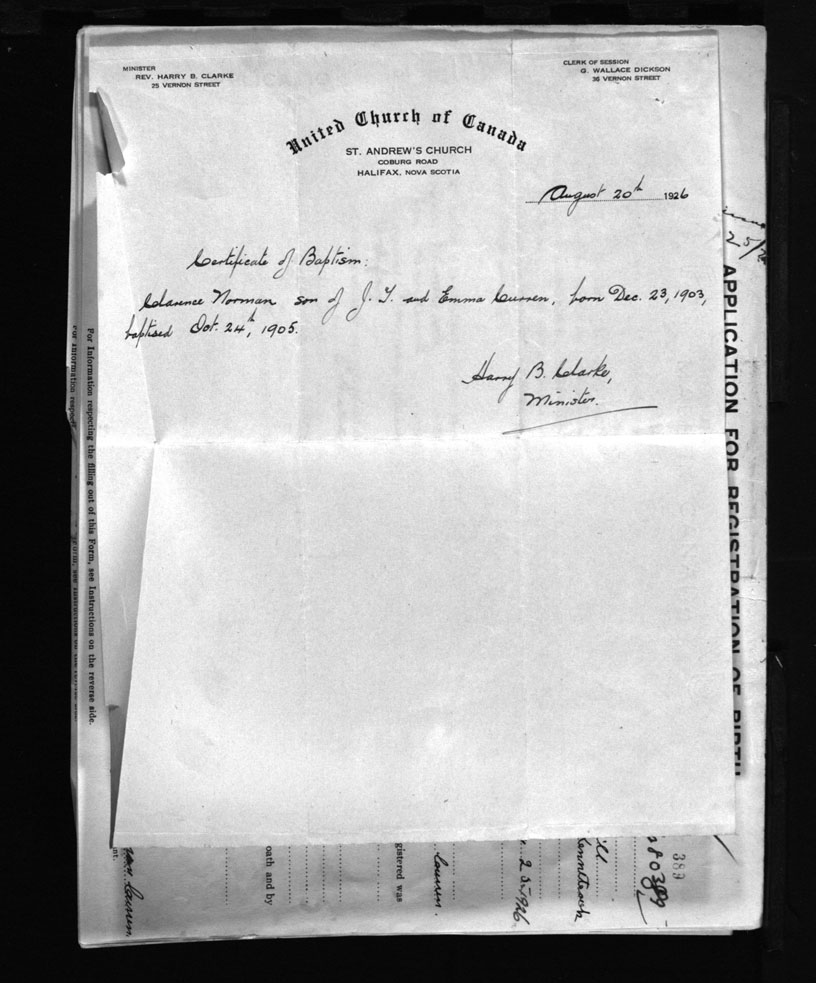 MINISTER
REV. HARRY B. CLARKE
25 VERNON STREET
CLERK OF SESSION
G. WALLACE DICKSON
36 VERNON STREET
United Church of Canada
ST. ANDREW'S CHURCH
COBURG ROAD
HALIFAX, NOVA SCOTIA
August 20th 1926
Certificate of Baptism:
Clarence Norman son of J. T. and Emma Curren, born Dec. 23, 1903,
baptised Oct. 24th, 1905.
Harry B. Clarke,
Minister.
APPLICATION FOR REGISTRATION OF BIRTH
For Information respecting the filling out of this Form, see Instructions on the reverse side.
For Information
389
25-1926
Curren.
gistered was
oath and by
Curren.
nt.